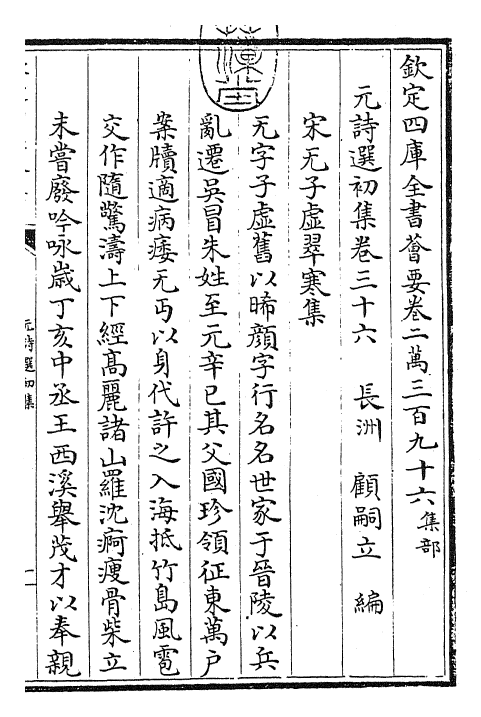 欽定四庫全書薈要卷二萬三百九十六集部
元詩選初集卷三十六 長洲 顧嗣立 編
宋无子虛翠寒集
无字子虛舊以晞顔字行名名世家于晉陵以兵
亂遷吳冒朱姓至元辛巳其父國珍領征東萬戶
案牘適病痿无丐以身代許之入海抵竹島風雹
交作隨驚濤上下經髙麗諸山羅沈痾瘦骨柴立
未嘗廢吟咏歲丁亥中丞王西溪舉茂才以奉親
元詩選初集